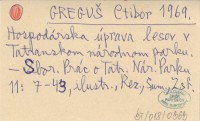 GREGUŠ Ctibor 1969.
Hospodárska úprava lesov v
Tatranskom národnom parku.
— Sbor. Prác o Tatr. Nár. Parku
11: 7-43, ilustr., Rez, Sumy